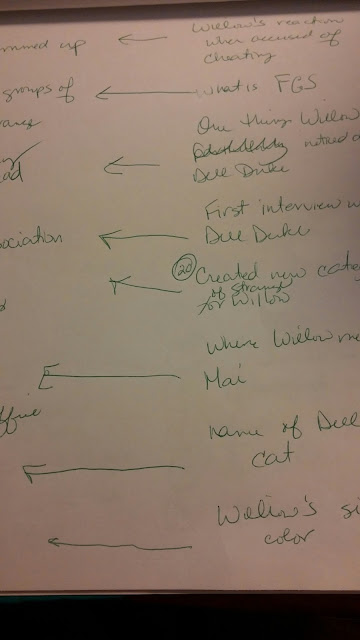 Willow's reaction
mmed up ← when accused of
cheating
groups of ← what is FGS
One thing Willow
noticed a
ad ← Dell Duke
First interview w
ociation ← Dell Duke
(20) Created new cate
of strange
for Willow
Where Willow me
Mai
ffice
name of Dell
cat
Willow's si
color